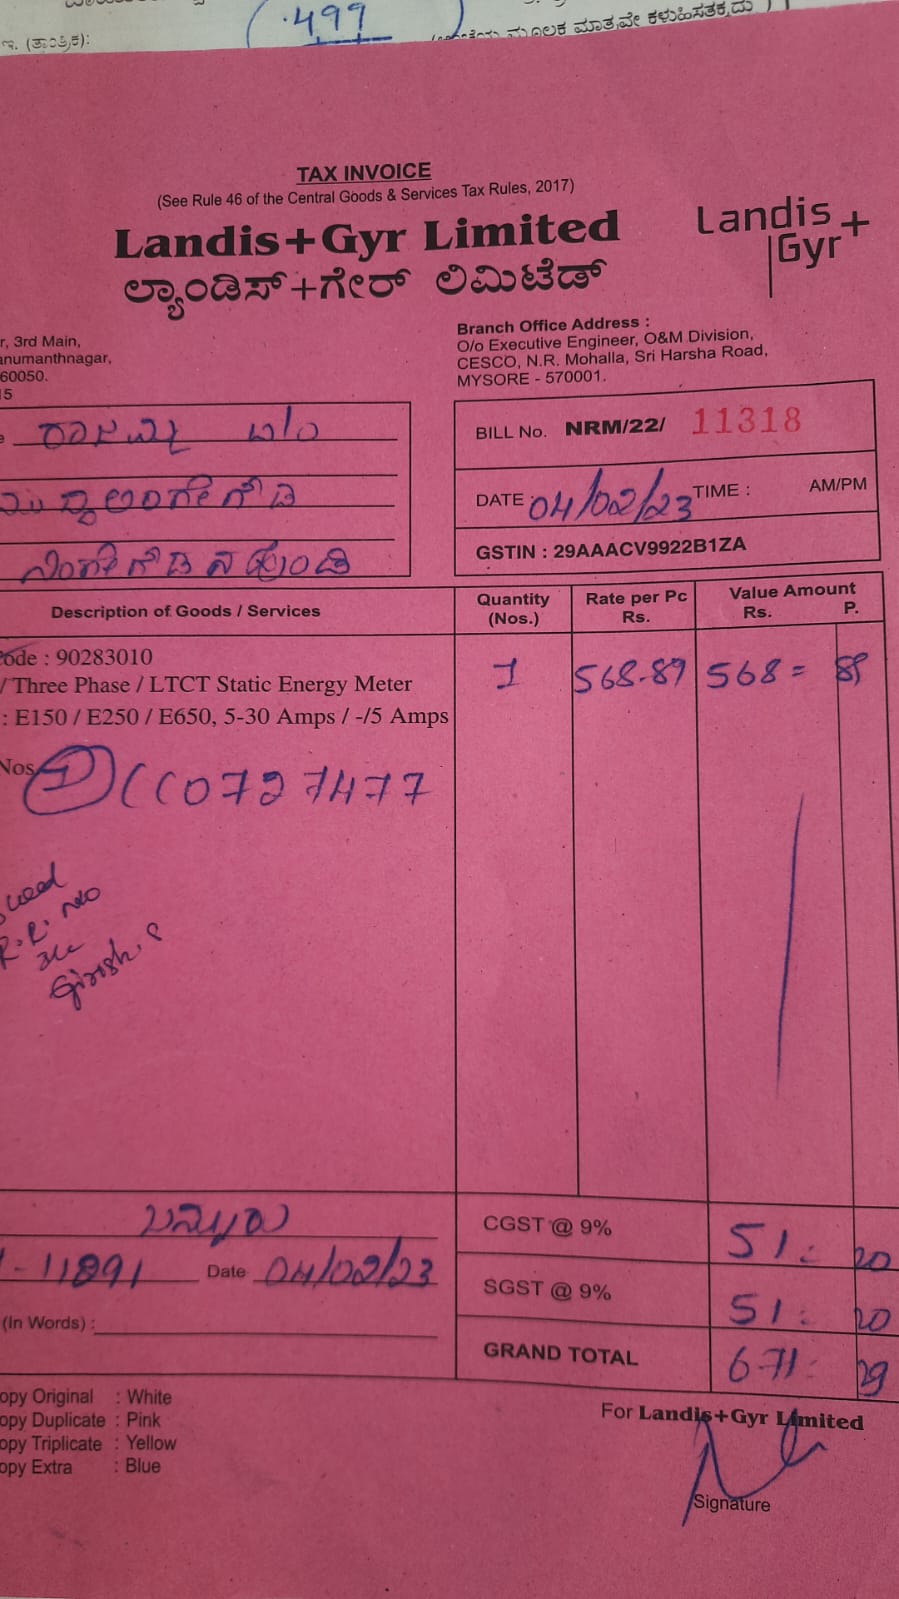 .499
ಇ. (ತಾಂತ್ರಿಕ):
ಮೂಲಕ ಮಾತ್ರವೇ ಕಳುಹಿಸತಕ್ಕದ್ದು )
TAX INVOICE
(See Rule 46 of the Central Goods & Services Tax Rules, 2017)
Landis+Gyr Limited
Landis
Gyr+
ಲ್ಯಾಂಡಿಸ್+ಗೇರ್ ಲಿಮಿಟೆಡ್
r, 3rd Main,
anumanthnagar,
60050.
15
Branch Office Address :
O/o Executive Engineer, O&M Division,
CESCO, N.R. Mohalla, Sri Harsha Road,
MYSORE - 570001.
BILL No. NRM/22/ 11318
DATE : 04/02/23 TIME : AM/PM
GSTIN : 29AAACV9922B1ZA
Description of Goods / Services Quantity (Nos.) Rate per Pc Rs. Value Amount Rs. P.
ode : 90283010
/ Three Phase / LTCT Static Energy Meter 1 568-89 568= 89
: E150 / E250 / E650, 5-30 Amps / -/5 Amps
Nos. 1 CC0727477
R.R. No
Girish. S
CGST @ 9% 51: 20
1-11891 Date 04/02/23
SGST @ 9% 51: 20
(In Words) :
GRAND TOTAL 671: 29
opy Original : White
opy Duplicate : Pink
opy Triplicate : Yellow
opy Extra : Blue
For Landis+Gyr Limited
Signature